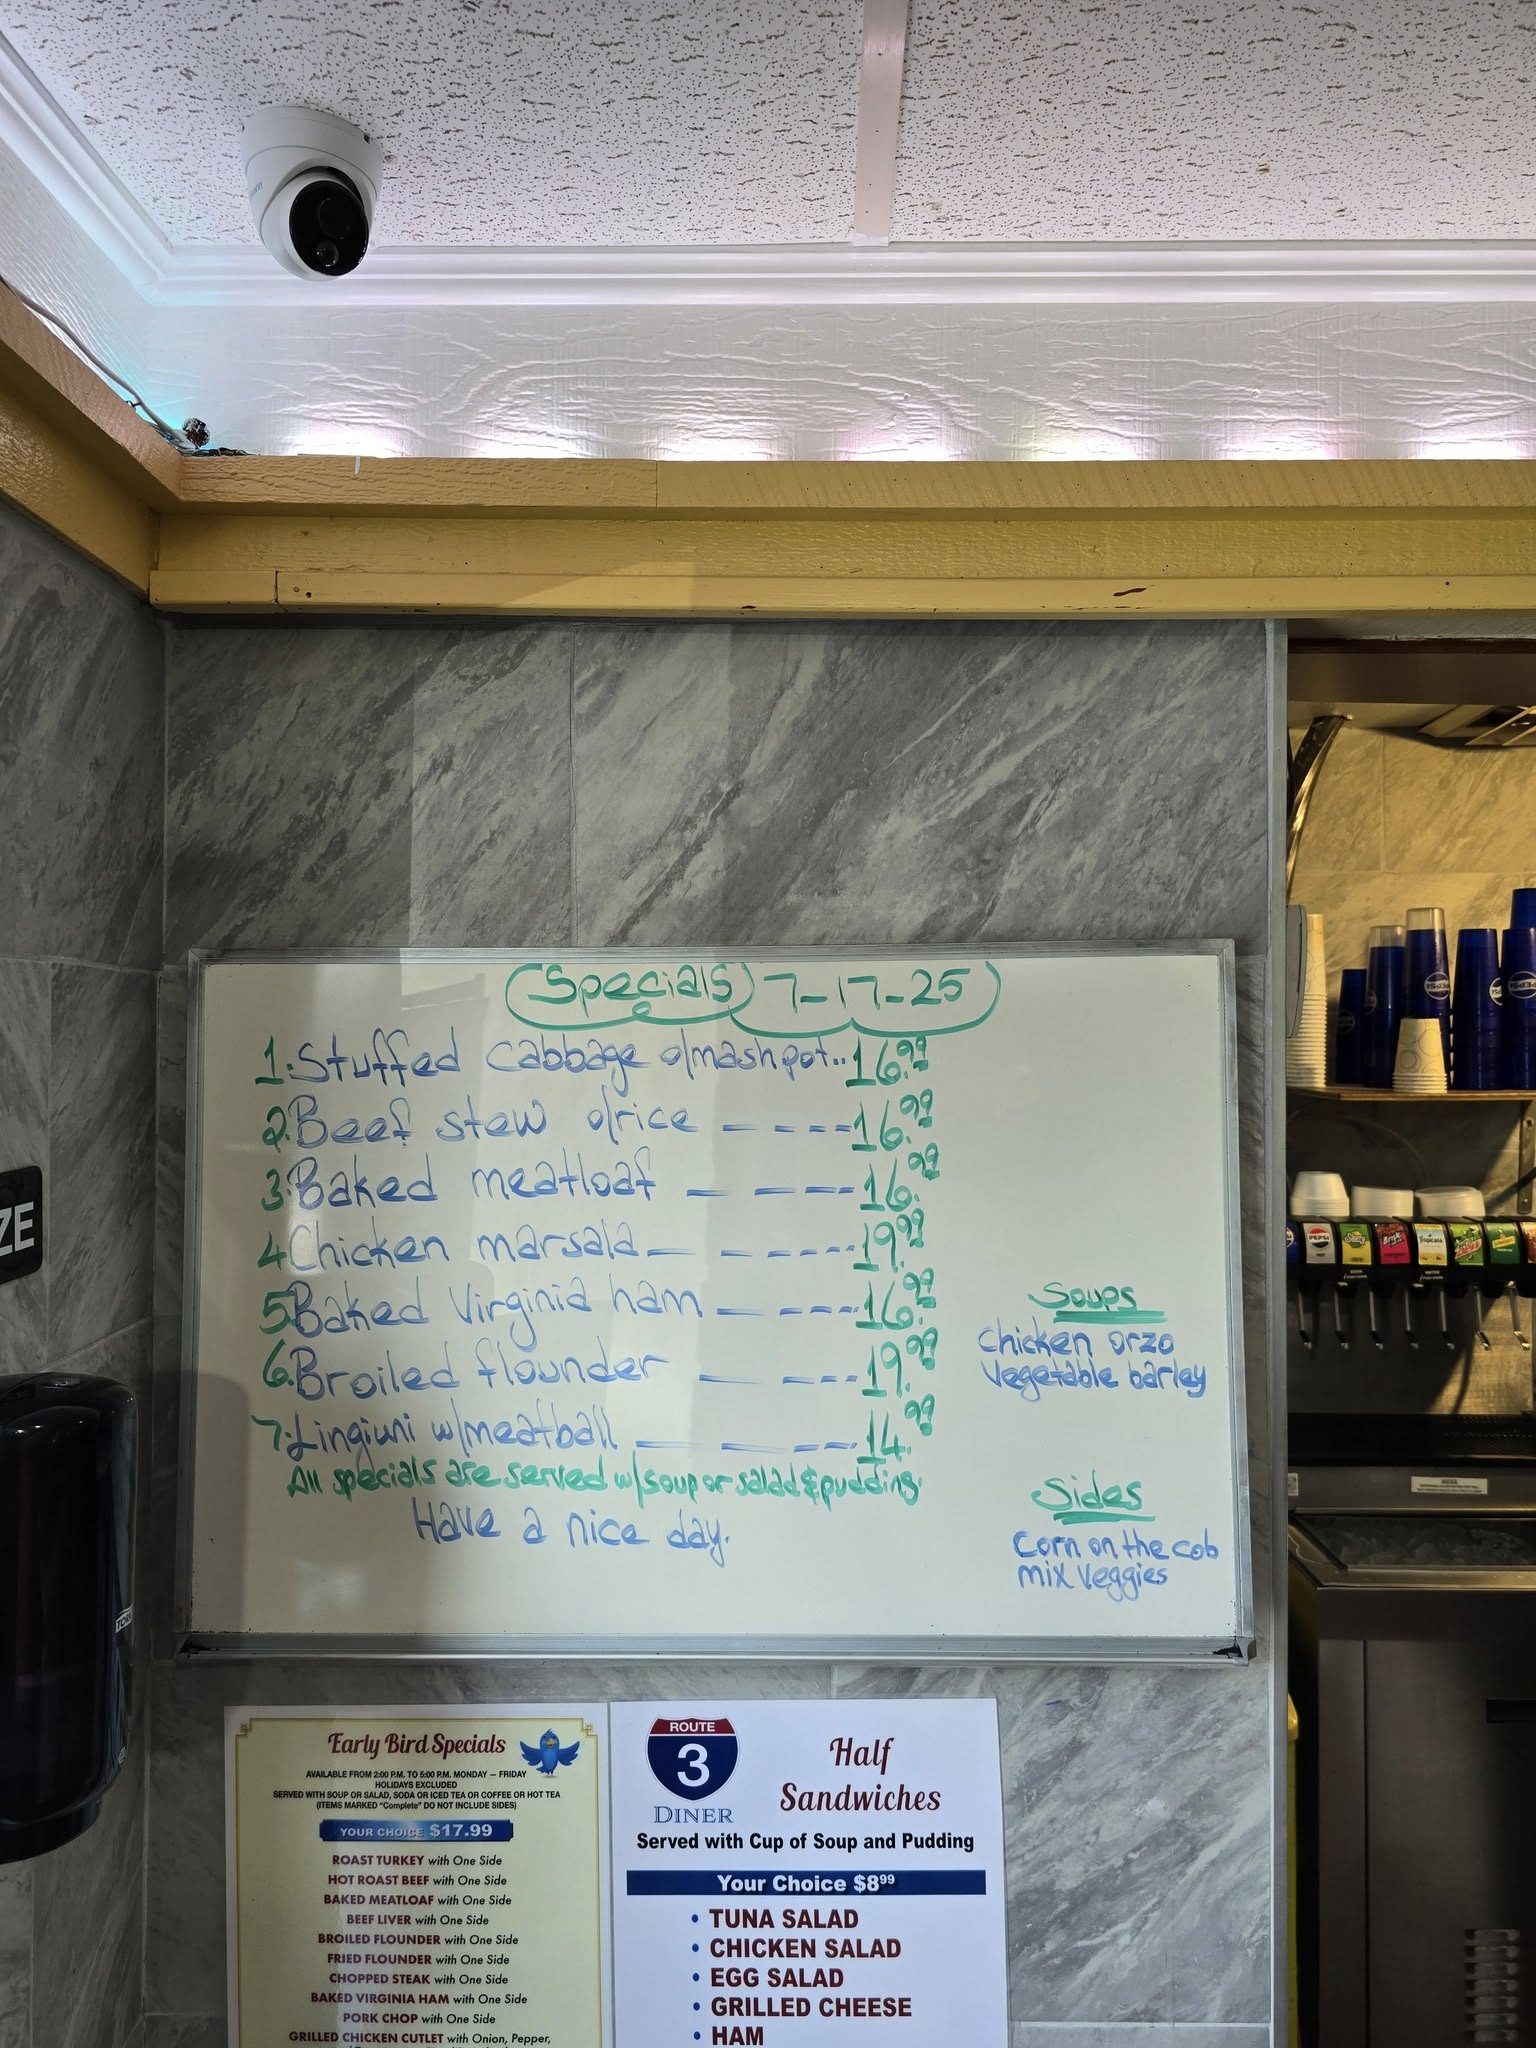 Specials 7-17-25
1. Stuffed cabbage o/mash pot.. 16.99
2. Beef stew o/rice ---- 16.99
3. Baked meatloaf ---- 16.99
4 Chicken marsala ---- 19.99
5. Baked Virginia ham ---- 16.99
6. Broiled flounder ---- 19.99
7. Linginni w/meatball ---- 14.99
All specials are served w/soup or salad & pudding.
Have a nice day.
Soups
Chicken orzo
Vegetable barley
Sides
Corn on the cob
mix Veggies
ZE
Early Bird Specials
AVAILABLE FROM 2:00 P.M. TO 5:00 P.M. MONDAY – FRIDAY
HOLIDAYS EXCLUDED
SERVED WITH SOUP OR SALAD, SODA OR ICED TEA OR COFFEE OR HOT TEA
(ITEMS MARKED "Complete" DO NOT INCLUDE SIDES)
YOUR CHOICE $17.99
ROAST TURKEY with One Side
HOT ROAST BEEF with One Side
BAKED MEATLOAF with One Side
BEEF LIVER with One Side
BROILED FLOUNDER with One Side
FRIED FLOUNDER with One Side
CHOPPED STEAK with One Side
BAKED VIRGINIA HAM with One Side
PORK CHOP with One Side
GRILLED CHICKEN CUTLET with Onion, Pepper,
ROUTE
3
DINER
Half
Sandwiches
Served with Cup of Soup and Pudding
Your Choice $8.99
• TUNA SALAD
• CHICKEN SALAD
• EGG SALAD
• GRILLED CHEESE
• HAM
PEPSI
PEPSI
PEPSI
Starry
Brisk
Tropicana